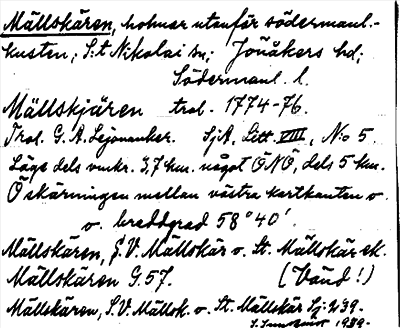 Mällskären, holmar utanför södermanl.-
kusten; S:t Nikolai sn; Jönåkers hd;
Södermanl. l.
Mällskjären trol. 1774-76.
Trol. G. A. Lejonanker. SjA, Litt. VIII, N:o 5.
Läge dels omkr. 3,7 km. något ONO, dels 5 km.
O skärningen mellan västra kartkanten o.
o. breddgrad 58°40'.
Mällskären, S.V. Mällskär o. St. Mällskär ek.
Mällskären G.57. (Vänd!)
Mällskären, S.V. Mällsk. o. St. Mällskär Sj. 239.
1939.